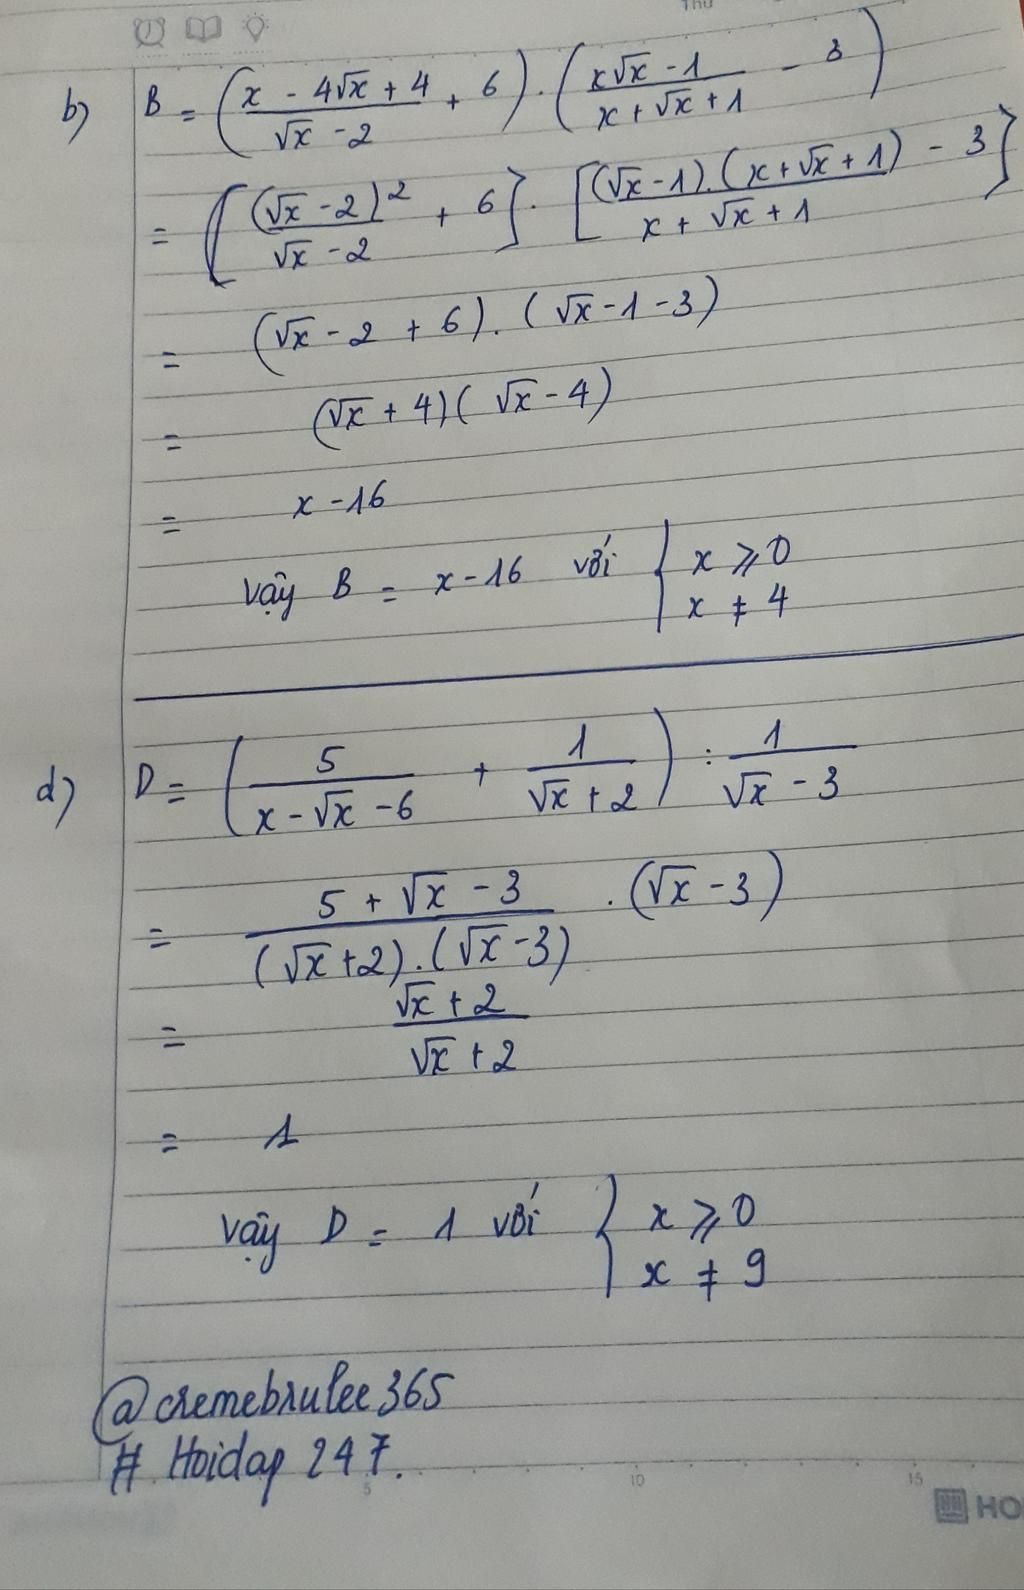 Thu
b) B = (x - 4√x + 4 / √x - 2 + 6) . (x√x - 1 / x + √x + 1 - 3)
= [(√x - 2)² / √x - 2 + 6] . [(√x - 1).(x + √x + 1) / x + √x + 1 - 3]
= (√x - 2 + 6). (√x - 1 - 3)
= (√x + 4)(√x - 4)
= x - 16
vậy B = x - 16 với { x ⩾ 0
x ≠ 4
d) D = (5 / x - √x - 6 + 1 / √x + 2) : 1 / √x - 3
= 5 + √x - 3 / (√x + 2).(√x - 3) . (√x - 3)
= √x + 2 / √x + 2
= 1
vậy D = 1 với { x ⩾ 0
x ≠ 9
@cremebrulee365
# Hoidap 247.
5 10 15
HO